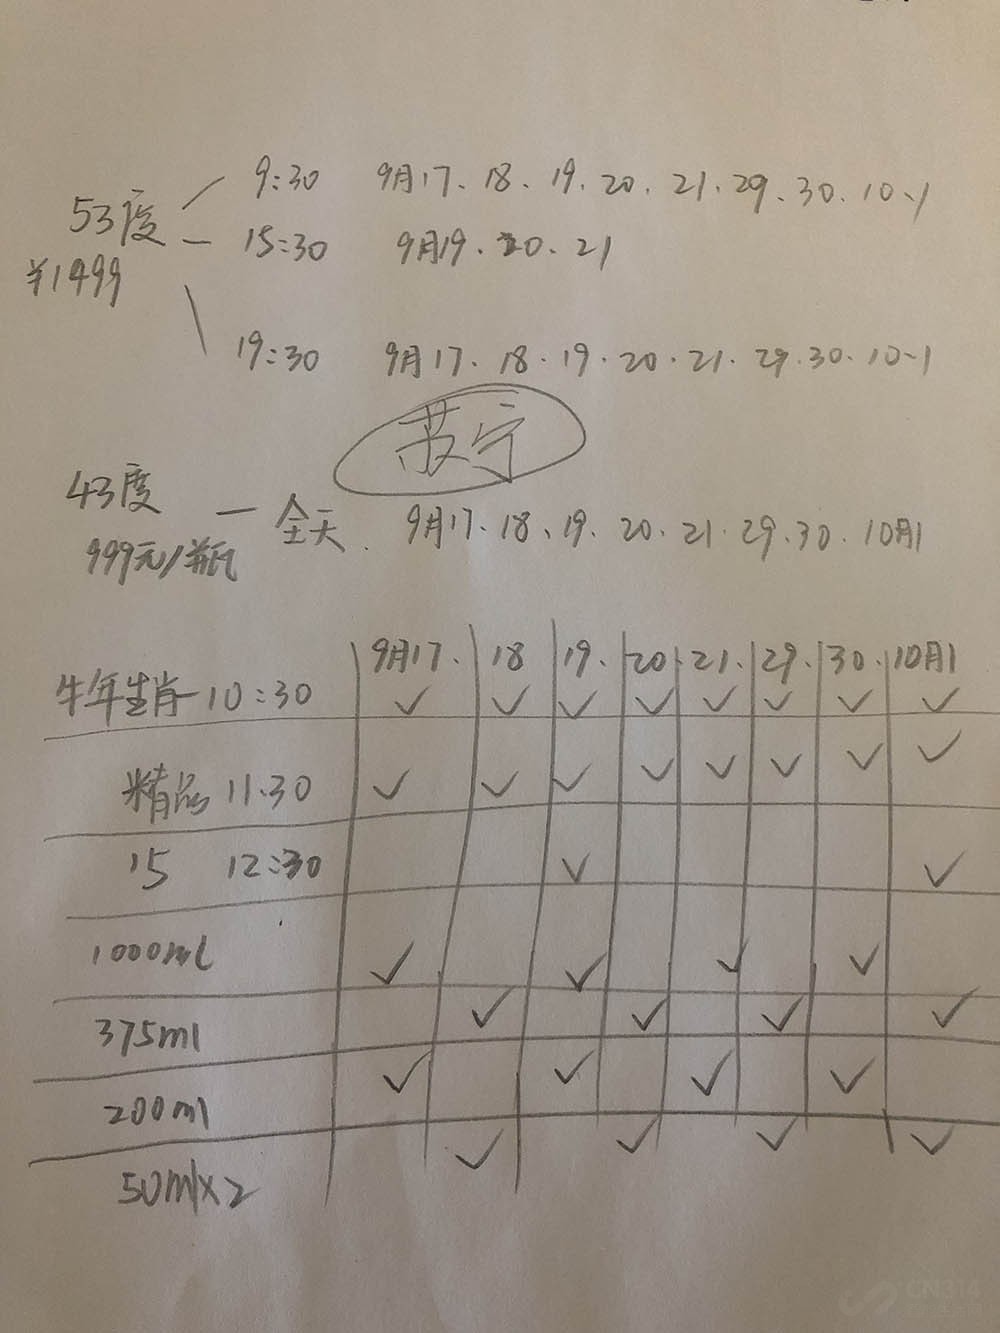 53度
¥1499
9:30 9月17、18、19、20、21、29、30、10-1
15:30 9月19、20、21
19:30 9月17、18、19、20、21、29、30、10-1
苏宁
43度 — 全天 9月17、18、19、20、21、29、30、10月1
999元/瓶
9月17. 18 19. 20. 21. 29. 30. 10月1
牛年生肖 10:30 ✓ ✓ ✓ ✓ ✓ ✓ ✓ ✓
精品 11.30 ✓ ✓ ✓ ✓ ✓ ✓ ✓ ✓
15 12:30 ✓ ✓
1000ml ✓ ✓ ✓ ✓
375ml ✓ ✓ ✓ ✓
200ml ✓ ✓ ✓ ✓
50ml×2 ✓ ✓ ✓ ✓